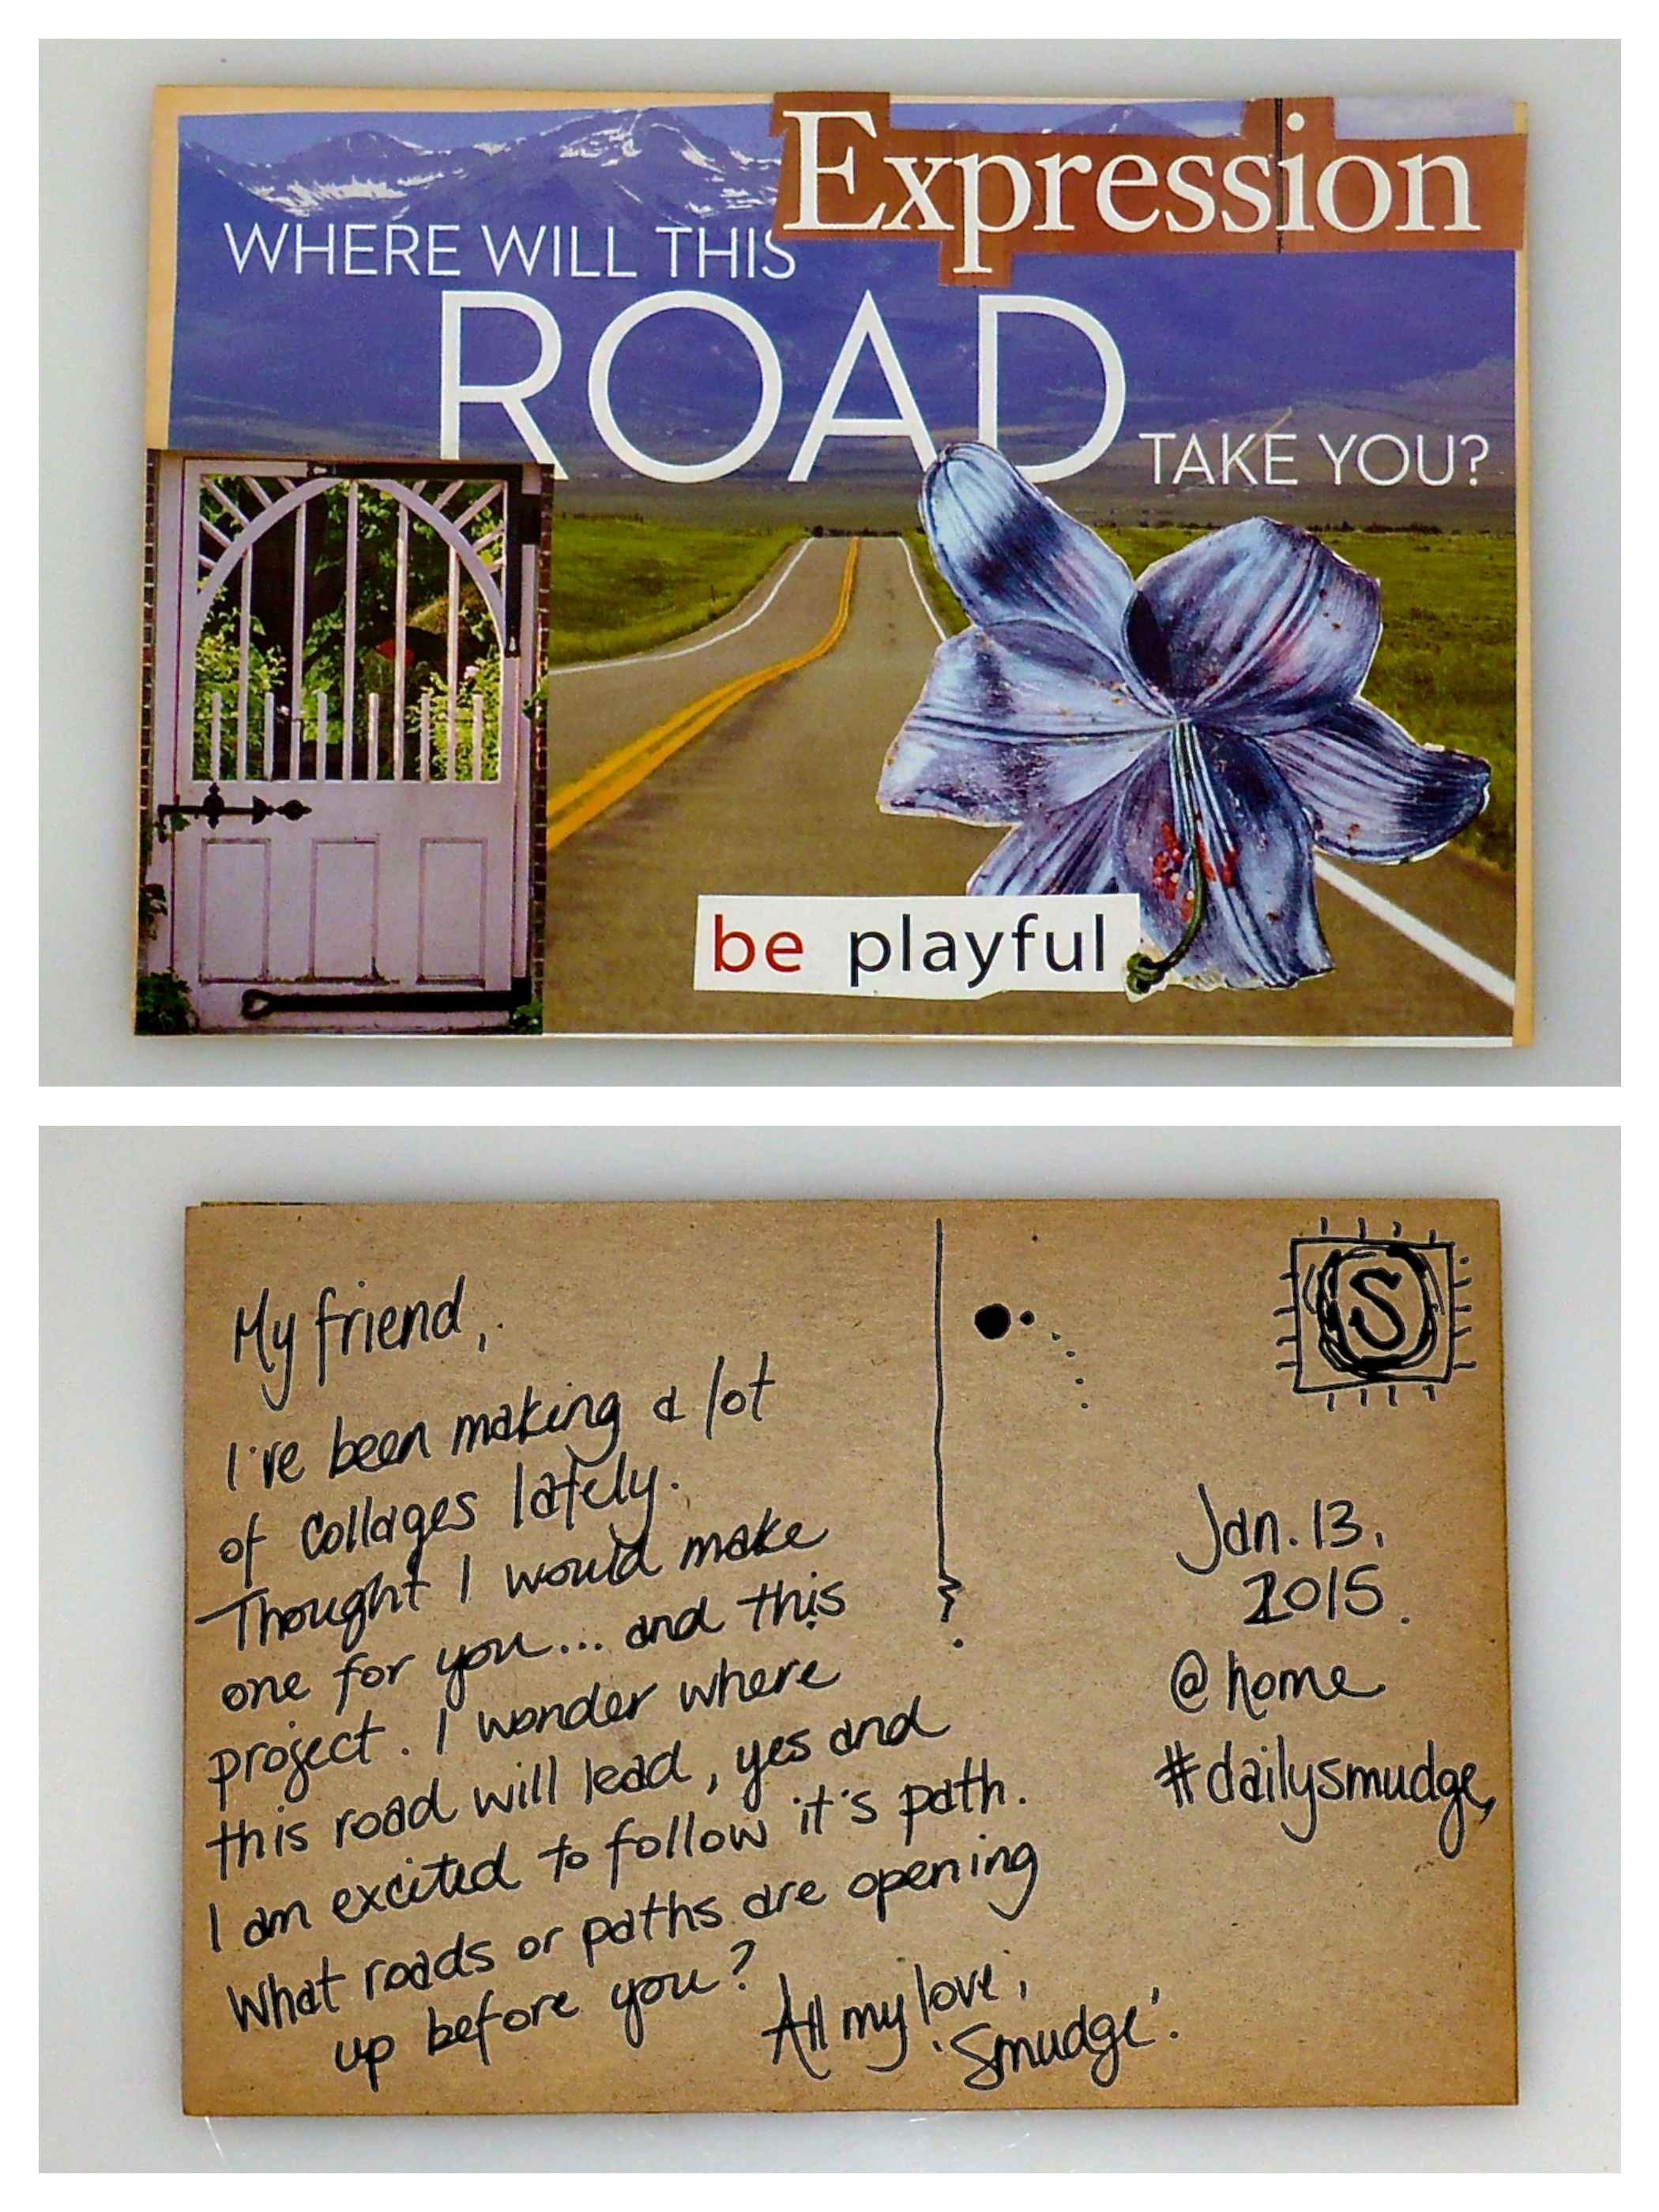 Expression
WHERE WILL THIS
ROAD
TAKE YOU?
be playful
My friend,
I've been making a lot
of collages lately.
Thought I would make
one for you... and this
project. I wonder where
this road will lead, yes and
I am excited to follow it's path.
What roads or paths are opening
up before you?
All my love,
'Smudge'.
S
Jan. 13,
2015.
@ home
#dailysmudge,